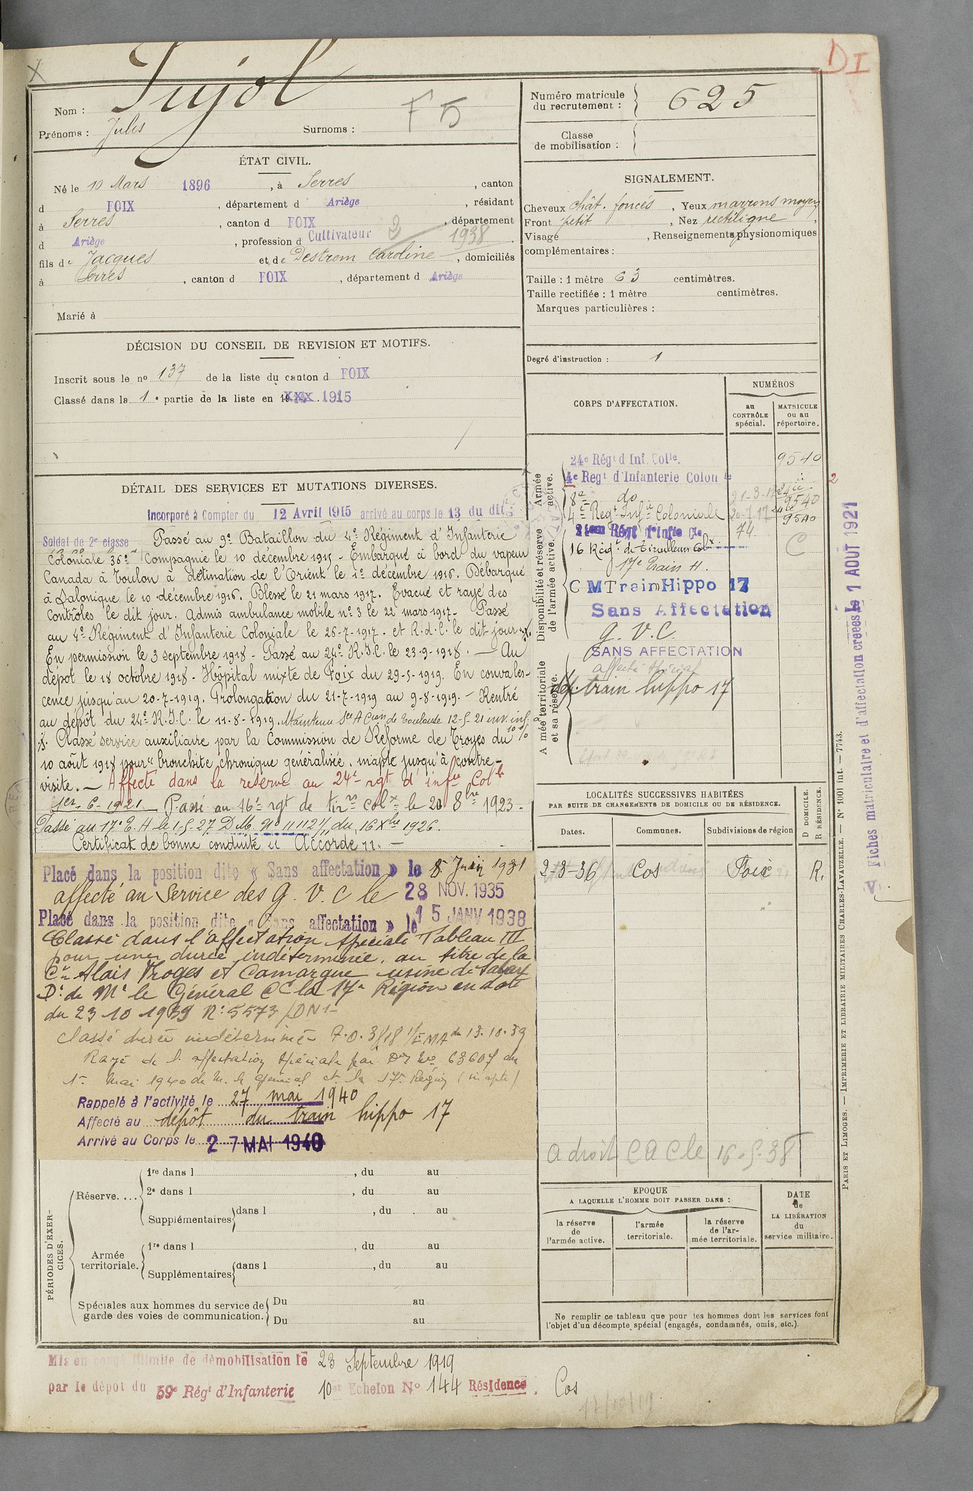 X
DI
Nom : Pujol
Prénoms : Jules Surnoms :
F5
Numéro matricule du recrutement : 625
Classe de mobilisation :
ÉTAT CIVIL.
Né le 10 Mars 1896, à Serres, canton
d FOIX, département d Ariège, résidant
à Serres, canton d FOIX, département
d Ariège, profession d Cultivateur
1938
fils de Jacques et de Destrem Caroline, domiciliés
à Serres, canton d FOIX, département d Ariège
Marié à
SIGNALEMENT.
Cheveux chât. foncés, Yeux marrons moyen
Front petit, Nez rectiligne,
Visage , Renseignements physionomiques
complémentaires :
Taille : 1 mètre 63 centimètres.
Taille rectifiée : 1 mètre centimètres.
Marques particulières :
Degré d'instruction : 1
DÉCISION DU CONSEIL DE REVISION ET MOTIFS.
Inscrit sous le nº 137 de la liste du canton d FOIX
Classé dans la 1e partie de la liste en 1915
DÉTAIL DES SERVICES ET MUTATIONS DIVERSES.
Incorporé à Compter du 12 Avril 1915 arrivé au corps le 13 du dit
Soldat de 2e classe
Passé au 9e Bataillon du 4e Régiment d'Infanterie
Coloniale 36e Compagnie le 10 décembre 1915 - Embarqué à bord du vapeur
Canada à Toulon à détination de l'Orient le 1er décembre 1916. Débarqué
à Salonique le 10 décembre 1916. Blessé le 21 mars 1917. Evacué et rayé des
contrôles le dit jour. Admis ambulance mobile nº 3 le 22 mars 1917. Passé
au 4e Régiment d'Infanterie Coloniale le 26-7-1917. et R.d.C. le dit jour
En permission le 3 septembre 1918 - Passé au 24e R.I.C. le 23-9-1918. - Au
dépôt le 18 octobre 1918 - Hôpital mixte de Foix du 29-5-1919. En convales-
cence jusqu'au 20-7-1919. Prolongation du 21-7-1919 au 9-8-1919. - Rentré
au dépôt du 24e R.I.C. le 11-8-1919. Maintenu Toulouse 12-5-21 inf. à
10%
Classé service auxiliaire par la Commission de Réforme de Troyes du
10 août 1918 pour bronchite chronique généralisée, inapte jusqu'à contre-
visite. - Affecté dans la réserve au 24e rgt d'infie Colle
1er. 6. 1921 - Passé au 16e rgt de tirrs colx le 20 8bre 1923 -
Passé au 17e E.H. le 1-5-27 D.M. Nº 11112 1/ du 16 Xbre 1926.
Certificat de bonne conduite Accordé
Placé dans la position dite « Sans affectation » le 8 Juin 1931
affecté au Service des G.V.C le 28 NOV. 1935
Placé dans la position dite « Sans affectation » le 15 JANV 1938
Classé dans l'affectation spéciale Tableau III
pour une durée indéterminée, au titre de la
Cie Alais Froges et Camargue usine de Sabart
Dn de Mr le Général Ct la 17e Région en date
du 23 10 1939 Nº 5573/
Classé durée indéterminée F.O. 3/18 1/EMA du 13.10.39
Rayé de l'affectation spéciale par Dn Nº 63607 du
1er Mai 1940 de M. le général Ct la 17e Région (inapte)
Rappelé à l'activité le 27 mai 1940
Affecté au dépôt du train hippo 17
Arrivé au Corps le 27 MAI 1940
CORPS D'AFFECTATION.
NUMÉROS
au CONTRÔLE spécial.
MATRICULE ou au répertoire.
Armée active.
24e Régt d'Inf. Colle. 9540
4e Regt d'Infanterie Colon le
8e do 21-3-17 9540
4e Regt Infie Coloniale 9540
Disponibilité et réserve de l'armée active.
24eme Régt d'Infie Cle 74
16 Régt de Tirailleurs Colx C
17e Train H.
C M Train Hippo 17
Sans Affectation
G.V.C.
SANS AFFECTATION
Armée territoriale et sa réserve.
affecté spécial
train hippo 17
LOCALITÉS SUCCESSIVES HABITÉES
PAR SUITE DE CHANGEMENTS DE DOMICILE OU DE RÉSIDENCE.
Dates. Communes. Subdivisions de région
D DOMICILE.
R RÉSIDENCE.
2-3-36 Cos Foix R.
a droit CAC le 16-5-38
EPOQUE
A LAQUELLE L'HOMME DOIT PASSER DANS :
la réserve de l'armée active.
l'armée territoriale.
la réserve de l'armée territoriale.
DATE de LA LIBÉRATION du service militaire.
Ne remplir ce tableau que pour les hommes dont les services font
l'objet d'un décompte spécial (engagés, condamnés, omis, etc.).
PÉRIODES D'EXERCICES.
Réserve....
1re dans l , du au
2e dans l , du au
Supplémentaires dans l , du au
Armée territoriale.
1re dans l , du au
Supplémentaires dans l , du au
Spéciales aux hommes du service de garde des voies de communication.
Du au
Du au
Mis en congé illimité de démobilisation le 23 Septembre 1919
par le dépôt du 59e Régt d'Infanterie 10e Echelon Nº 144 Résidence. Cos
Fiches matriculaire et d'affectation créées le 1 AOUT 1921
PARIS ET LIMOGES. — IMPRIMERIE ET LIBRAIRIE MILITAIRES CHARLES-LAVAUZELLE. — Nº 1001 int. — 7743.